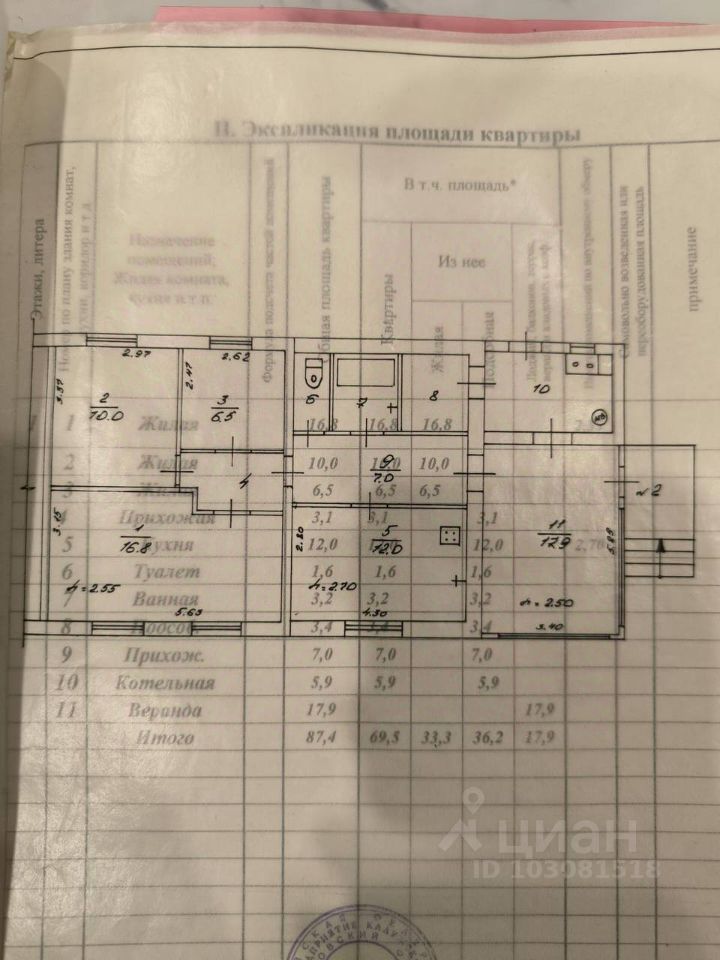 II. Экспликация площади квартиры
Этажи, литера
Номер по плану здания комнат, кухни, коридор и т.д
Назначение помещений; Жилая комната, кухня и т.п.
Формула подсчета частей помещений
Общая площадь квартиры
В т.ч. площадь*
Квартиры
Из нее
Жилая
Подсобная
Самовольно возведенная или переоборудованная площадь
примечание
1 1 Жилая 16,8 16,8 16,8
2 Жилая 10,0 10,0 10,0
3 6,5 6,5 6,5
4 Прихожая 3,1 3,1 3,1
5 Кухня 12,0 12,0 2,70
6 Туалет 1,6 1,6 1,6
7 Ванная 3,2 3,2 3,2
8 3,4 3,4 3,4
9 Прихож. 7,0 7,0 7,0
10 Котельная 5,9 5,9 5,9
11 Веранда 17,9 17,9
Итого 87,4 69,5 33,3 36,2 17,9
2.97
2.62
3.37
2.47
2
10.0
3
6.5
6
7
8
10
4
9
7.0
№2
3.15
1
16.8
2.80
5
12.0
11
17.9
5.89
h=2.55
h=2.70
h=2.50
5.63
4.30
3.40
циан
ID 103081518